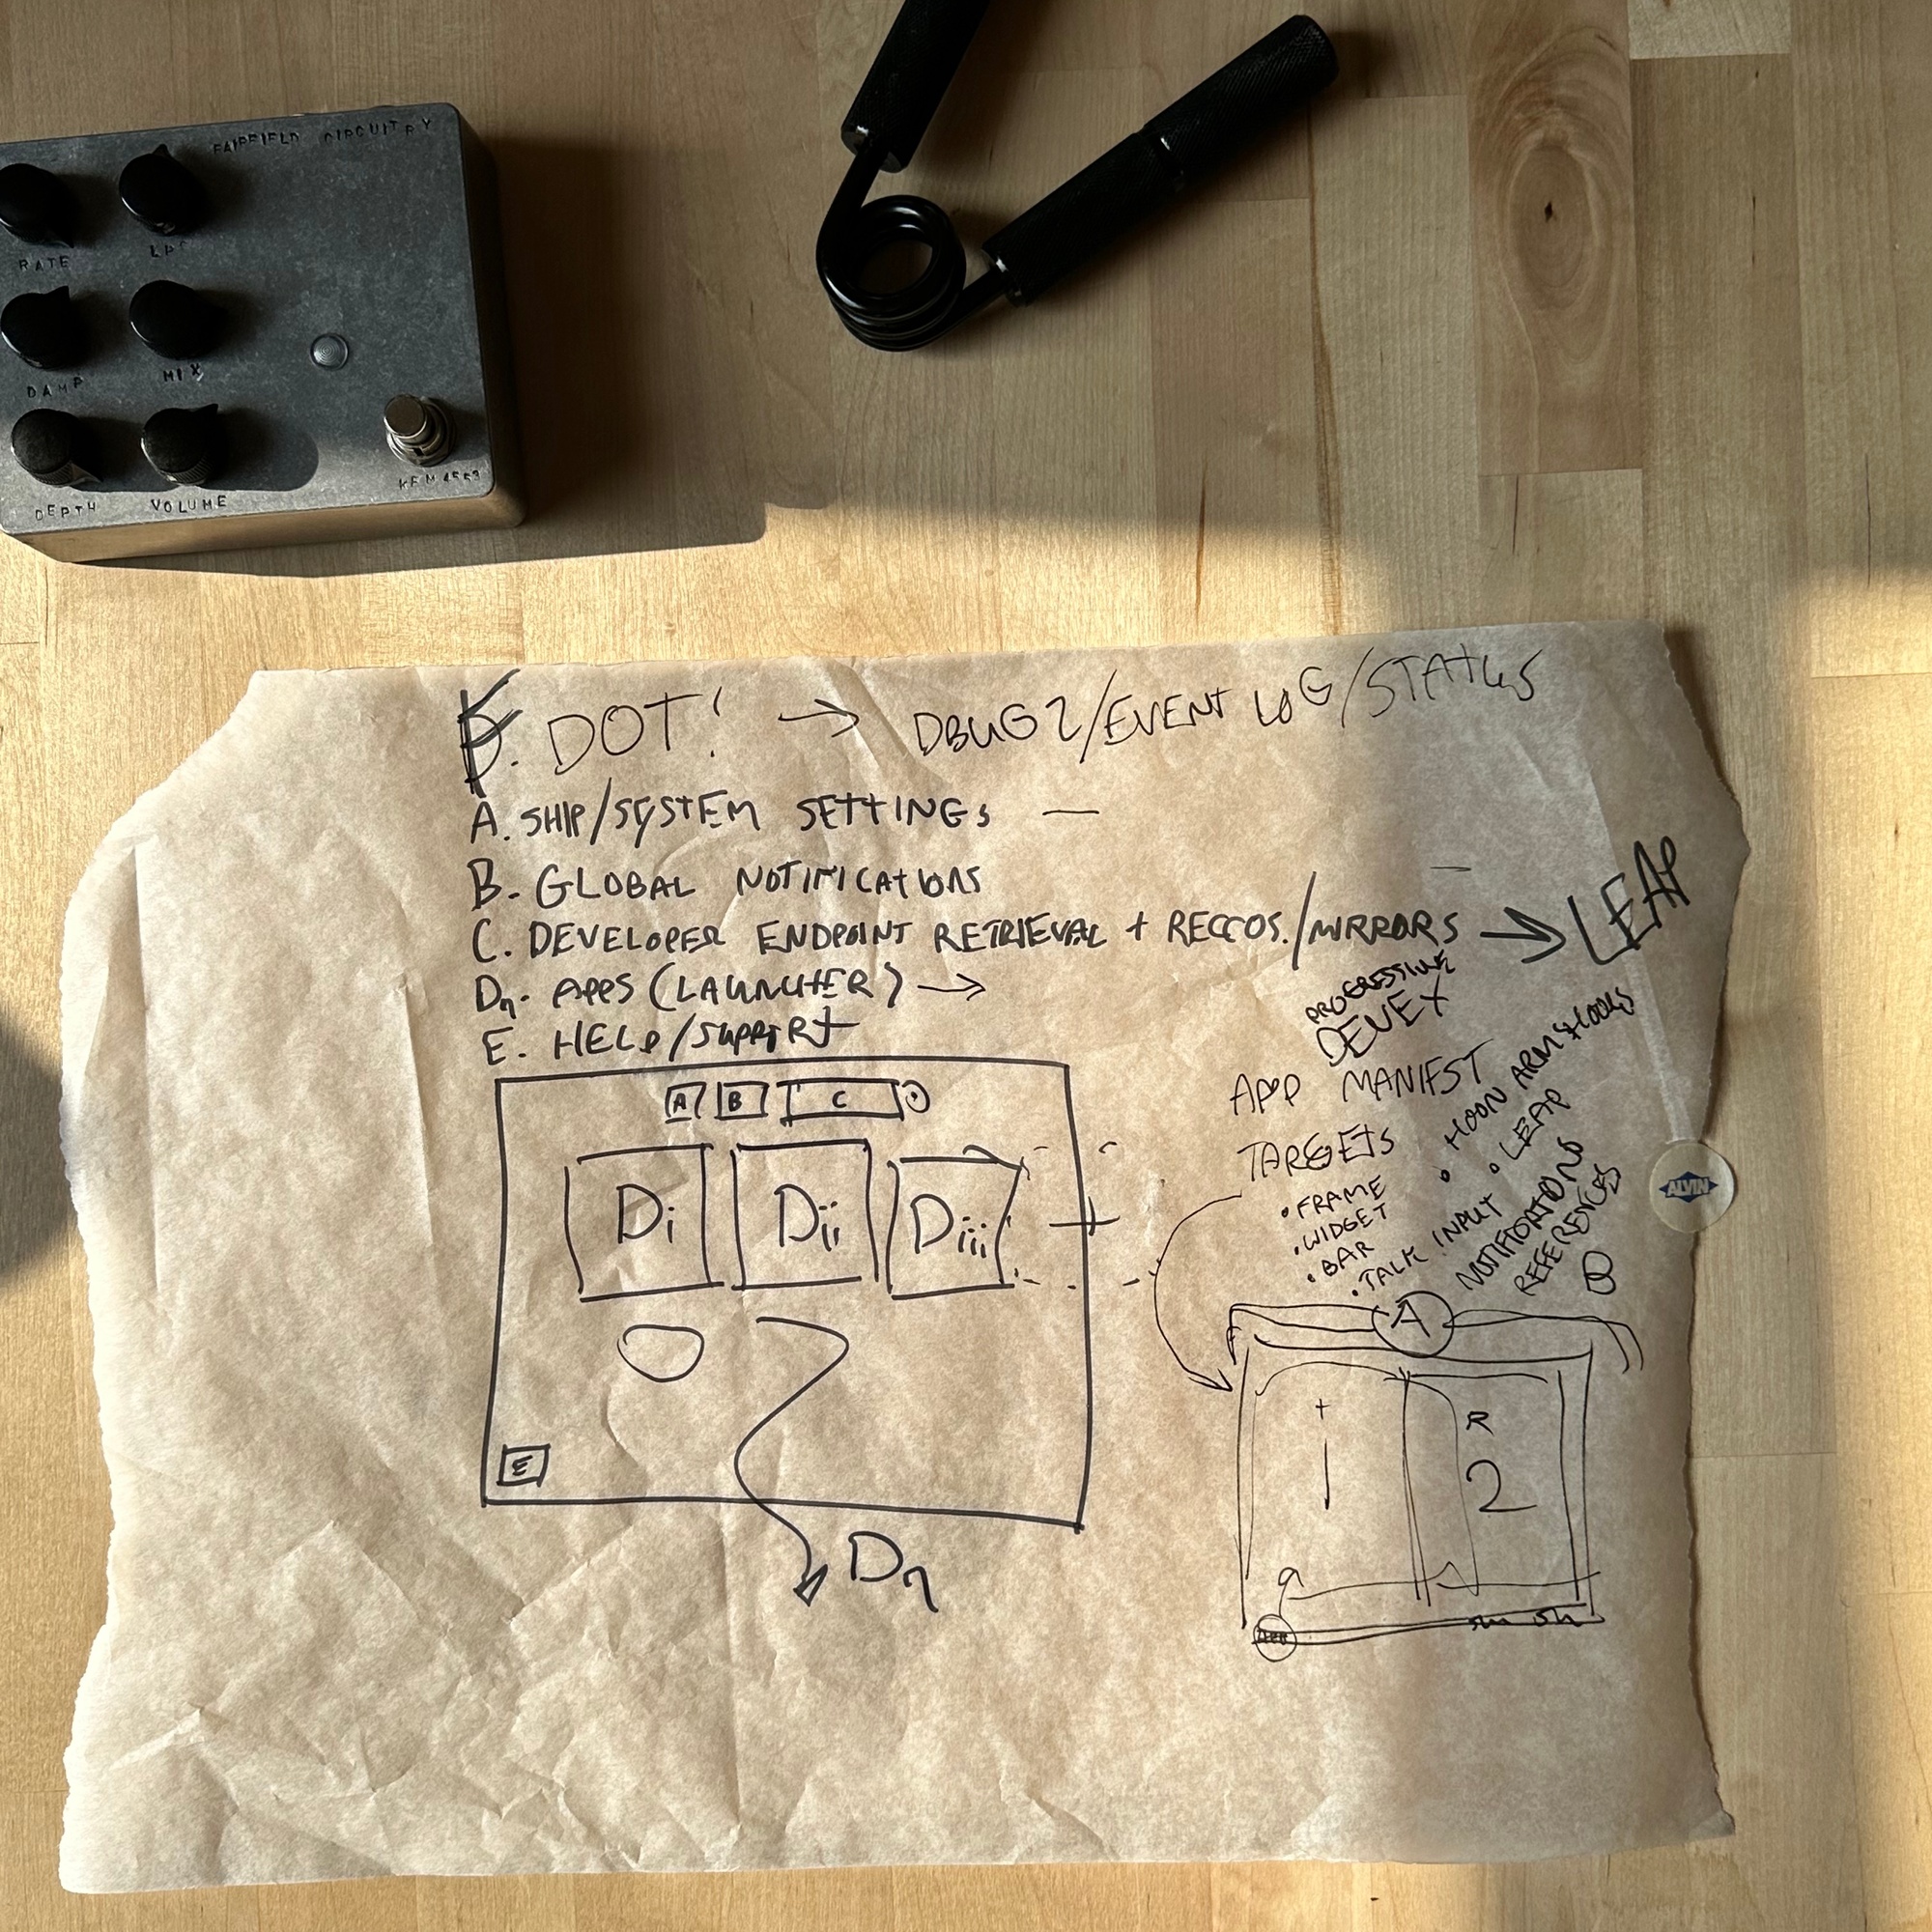 FAIRFIELD CIRCUITRY
RATE
LPF
DAMP
MIX
DEPTH
VOLUME
DOT! → DBUG 2/EVENT LOG/STATUS
A. SHIP/SYSTEM SETTINGS —
B. GLOBAL NOTIFICATIONS
C. DEVELOPER ENDPOINT RETRIEVAL + RECCOS./MIRRORS → LEAP
Dn. APPS (LAUNCHER) →
E. HELP/SUPPORT
PROGRESSIVE
DEVEX
APP MANIFEST
TARGETS
• FRAME
• WIDGET
• BAR
• TALK INPUT
• HOON ARMS + HOOKS
• LEAP
NOTIFICATIONS
REFERENCES
ALVIN
A B C
Di Dii Diii
E
Dn
A
1
R
2
APP